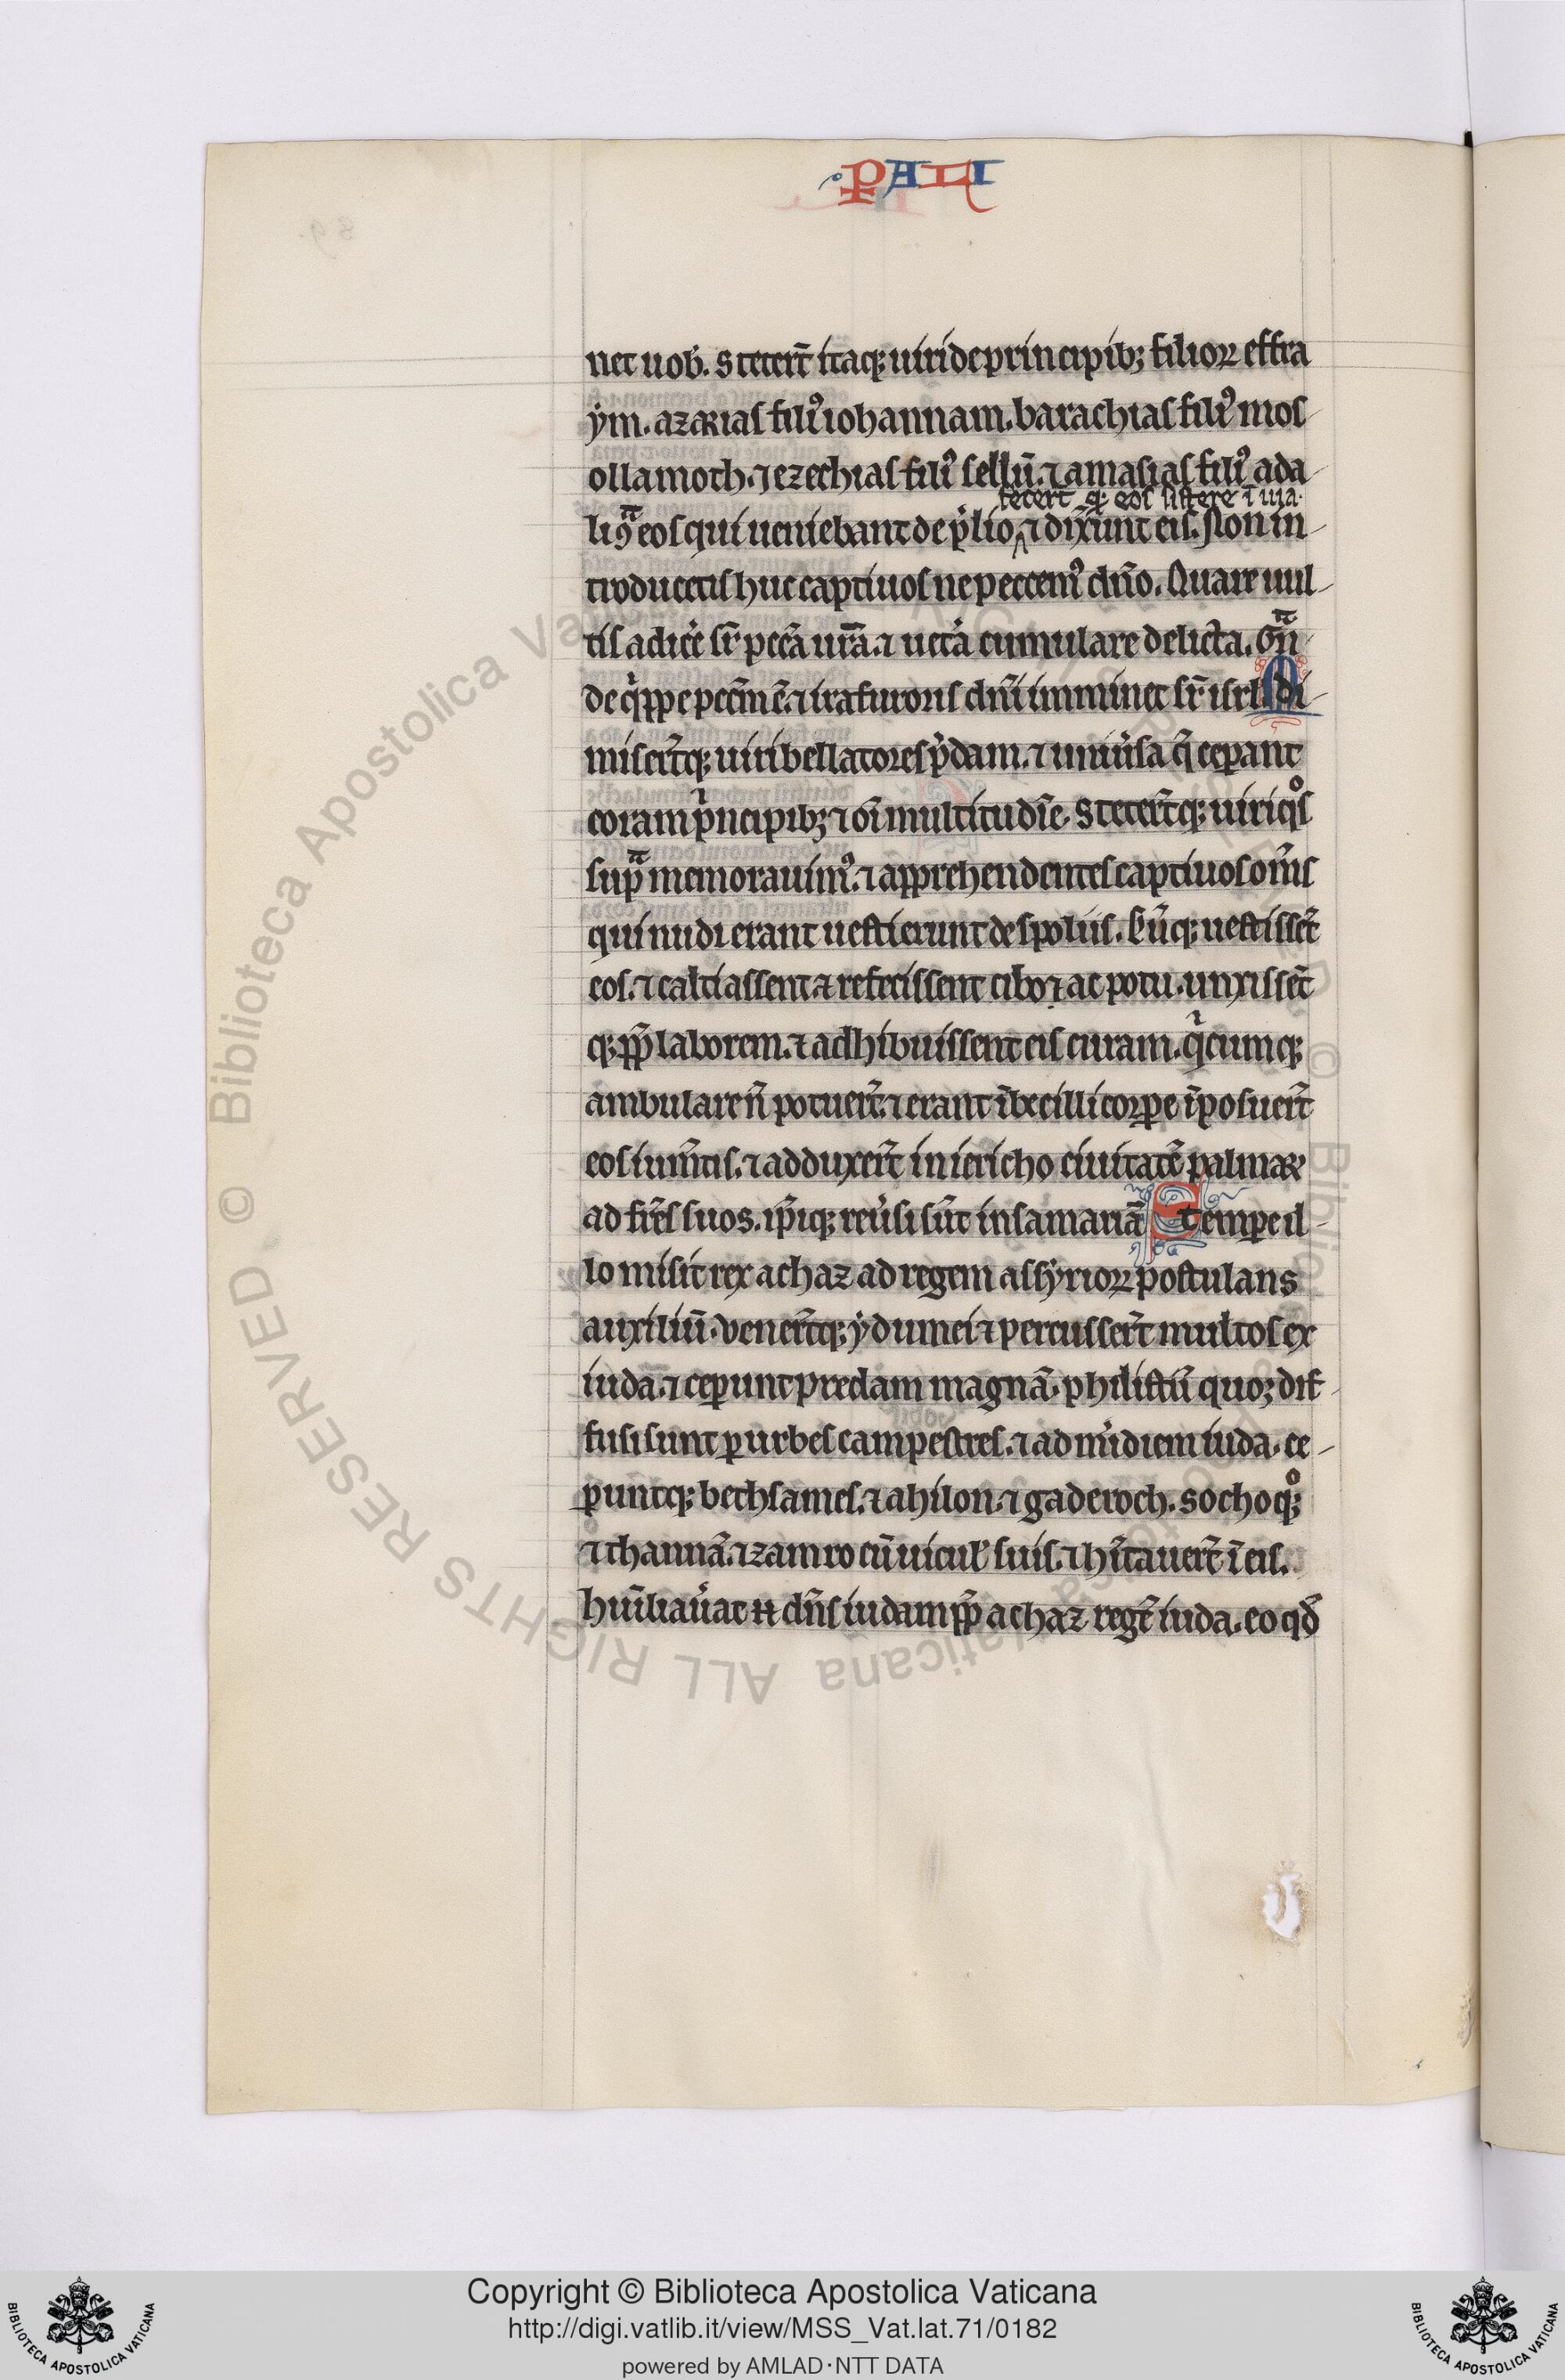 PALI
net uob̄. Stetert̄ itaq; uiri de principib; filioꝝ effra
ẏm. azarias filiꝰ iohannam. barachias filiꝰ mos
ollamoth. ⁊ ezechias filiꝰ sellū. ⁊ amasias filiꝰ ada
fecert̄ q; eos sistere ī uia.
li ꝯͣ eos qui ueniebant de p̄lio ⁊ dix̄unt eis. Non in
troducetis huc captiuos ne peccemꝰ dn̄o. Quare uul
tis adice̾ sr̄ pcc̄a ur̄a. ⁊ uet̾a cumulare delicta. Gͣn
de qͥppe pecc̄m ē. ⁊ ira furoris dn̄i imminet sr̄ isrl̄. Di
misert̄q; uiri bellatores p̄dam. ⁊ uniu̾sa q̄ ceꝑant
coram pͥncipib; ⁊ oī multitudīe. Stetert̄q; uiri qͦs
supͣ memorauimꝰ. ⁊ apprehendentes captiuos om̄s
qui nudi erant uestierunt de spoliis. Cūq; uestissēt
eos. ⁊ calciassent ⁊ refecissent cibo ⁊ ac potu. unxissēt
q; ꝓp̄ laborem. ⁊ adhibuissent eis curam. qͥcumq;
ambulare n̄ potuert̄. ⁊ erant ībecilli corꝑe īposuert̄
eos ium̄tis. ⁊ adduxert̄ in iericho ciuitatē palmaꝝ
ad fr̄es suos. ip̄iq; reu̾si sūt in samariā. Tempe il
lo misit rex achaz ad regem assẏrioꝝ postulans
auxiliū. Venert̄q; ẏdumei ⁊ percussert̄ multos ex
iuda. ⁊ ceꝑunt predam magnā. philistiī quoq; dif
fusi sunt ꝑ urbes campestres. ⁊ ad m̾idiem iuda. ce
ꝑuntq; bethsames. ⁊ ahilon. ⁊ gaderoth. sochoqͦ;
⁊ thannā. ⁊ zamro cū uiculꝭ suis. ⁊ hītauert̄ ī eis.
hum̄liau̾at n̄ dn̄s iudam ꝓp̄ achaz regē iuda. eo qđ
Copyright © Biblioteca Apostolica Vaticana
http://digi.vatlib.it/view/MSS_Vat.lat.71/0182
powered by AMLAD·NTT DATA